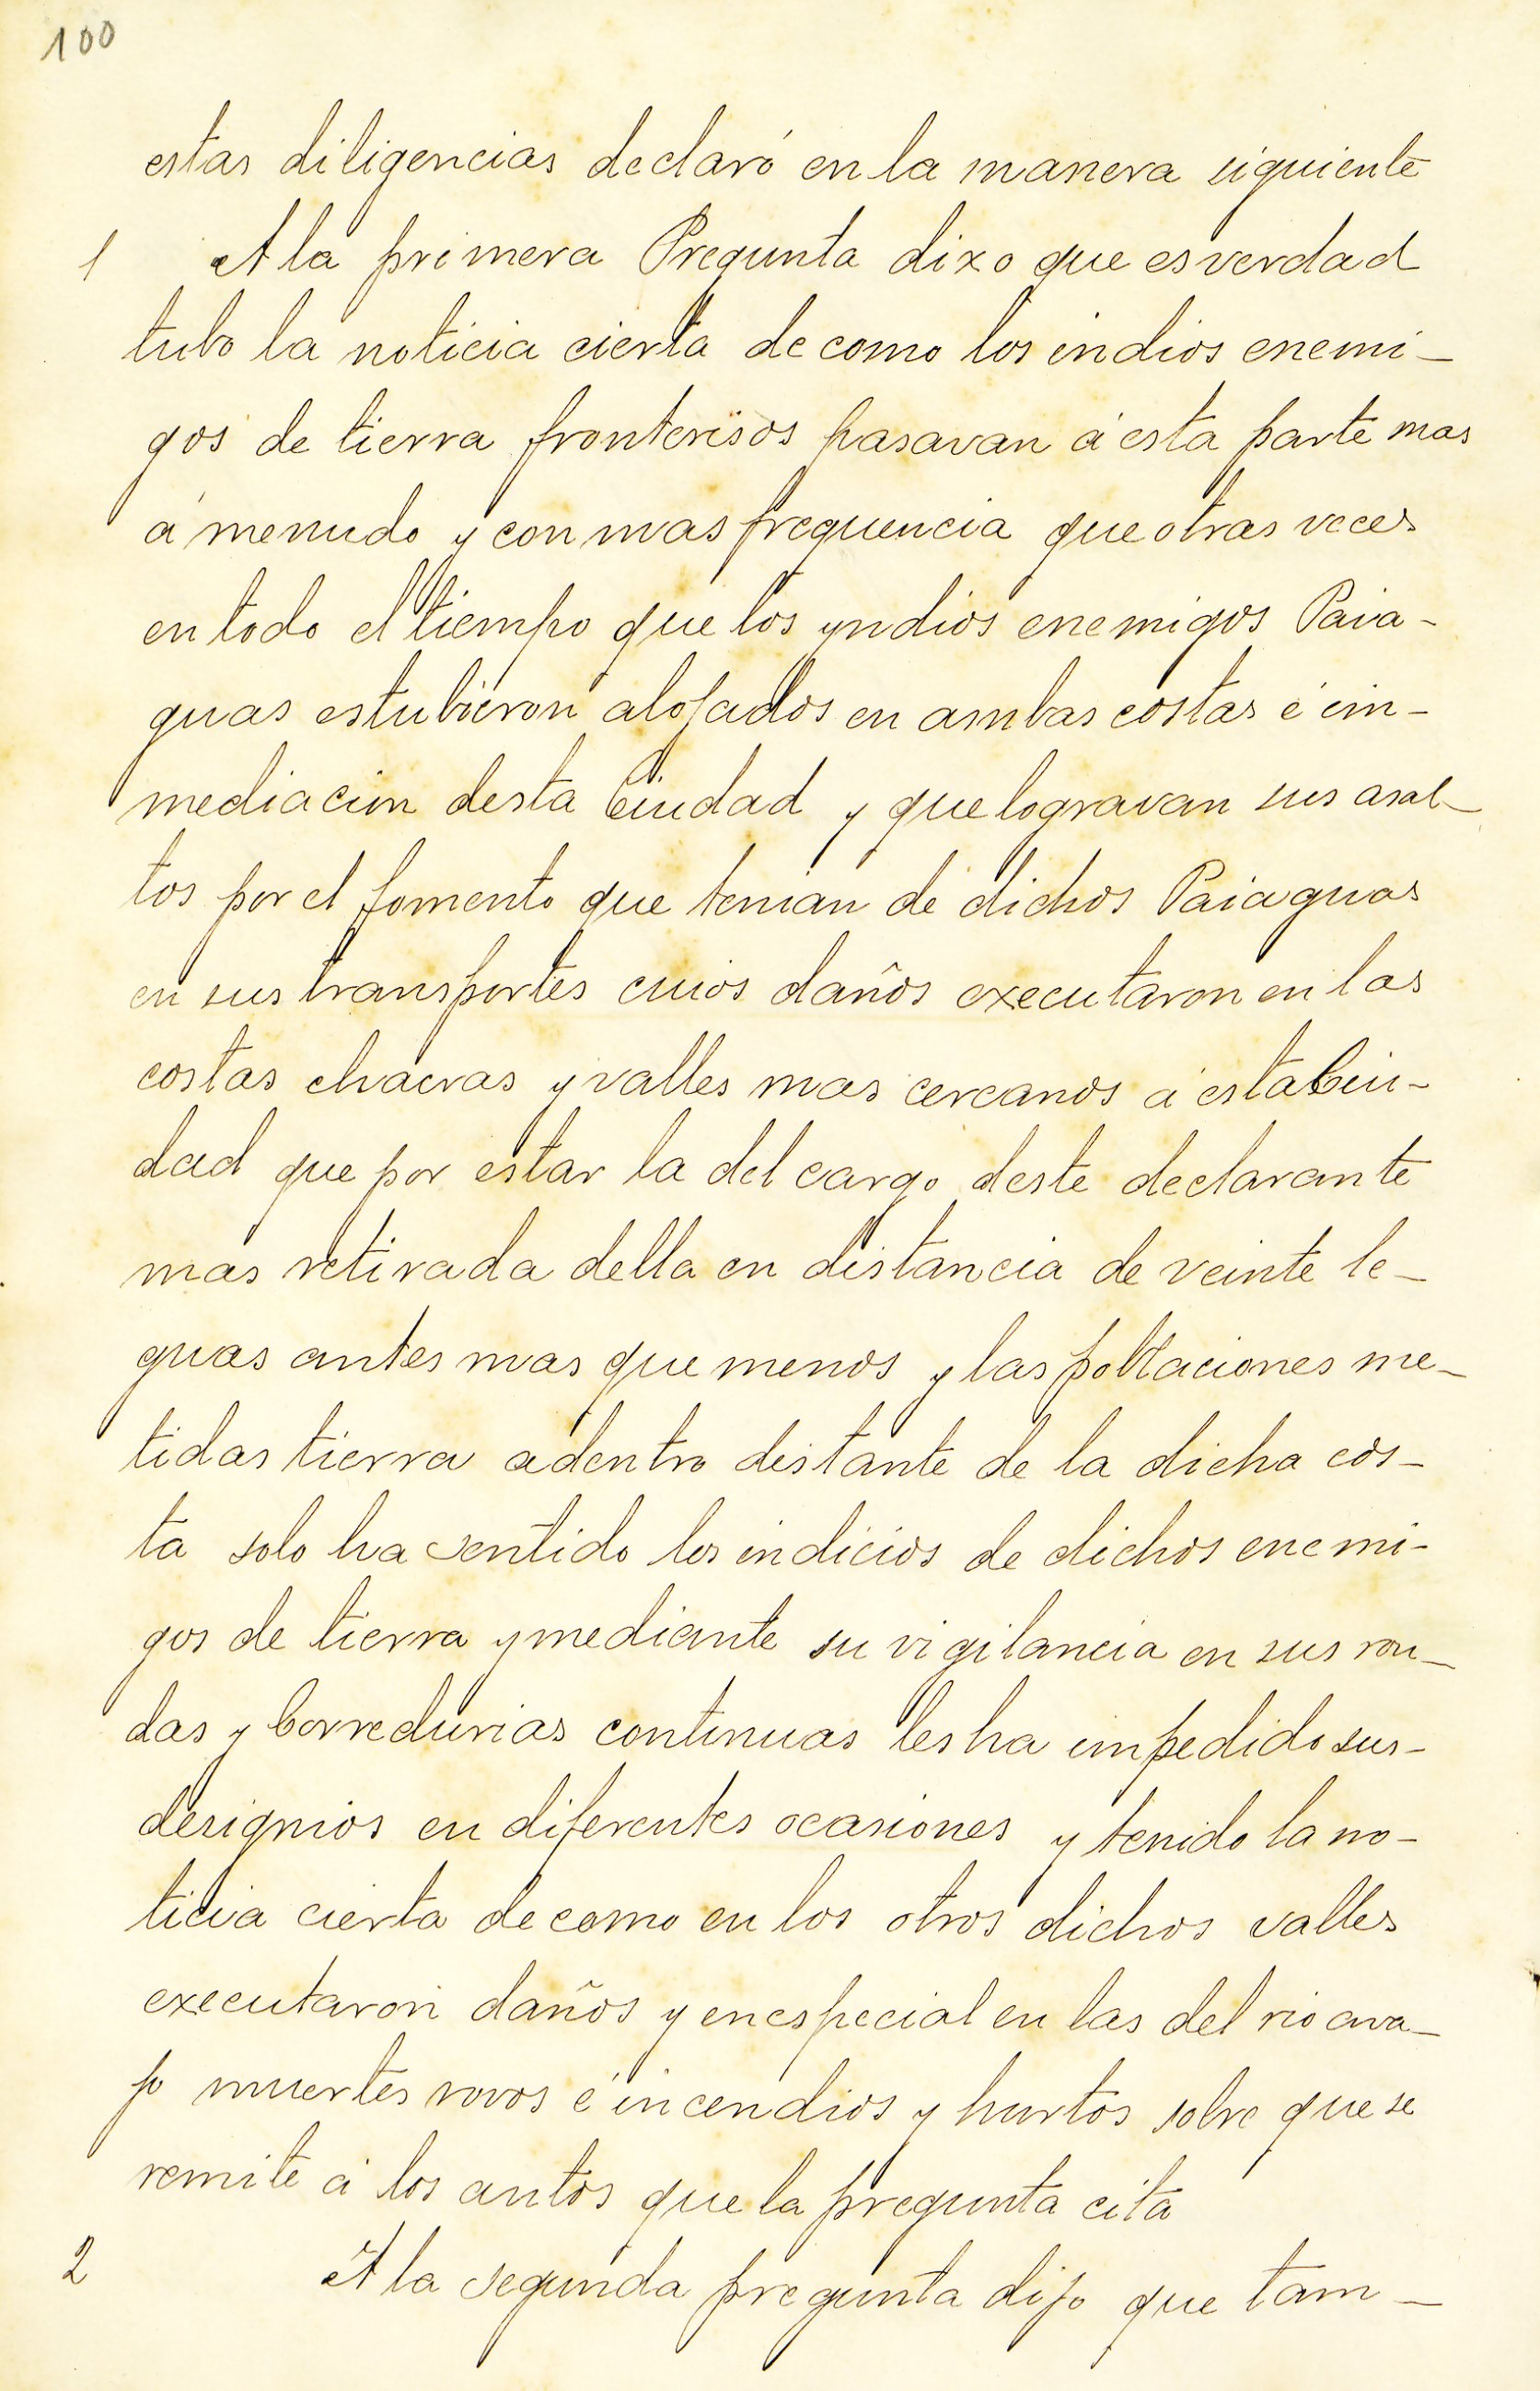 100
estas diligencias declaró en la manera siguiente
1 A la primera Pregunta dixo que es verdad
tubo la noticia cierta de como los indios enemi-
gos de tierra fronterisos pasavan á esta parte mas
á menudo y con mas frequencia que otras veces
en todo el tiempo que los yndios enemigos Paia-
guas estubieron alojados en ambas costas é in-
mediacion desta Ciudad y que logravan sus asal-
tos por el fomento que tenian de dichos Paiaguas
en sus transportes cuios daños executaron en las
costas chacras y valles mas cercanos á esta Ciu-
dad que por estar la del cargo deste declarante
mas retirada della en distancia de veinte le-
guas antes mas que menos y las poblaciones me-
tidas tierra adentro distante de la dicha cos-
ta solo ha sentido los indicios de dichos enemi-
gos de tierra y mediante su vigilancia en sus ron-
das y corredurias continuas les ha impedido sus-
designios en diferentes ocasiones y tenido la no-
ticia cierta de como en los otros dichos valles
executaron daños y en especial en las del rio ava-
jo muertes rovos é incendios y hurtos sobre que se
remite á los autos que la pregunta cita
2 A la segunda pregunta dijo que tam-